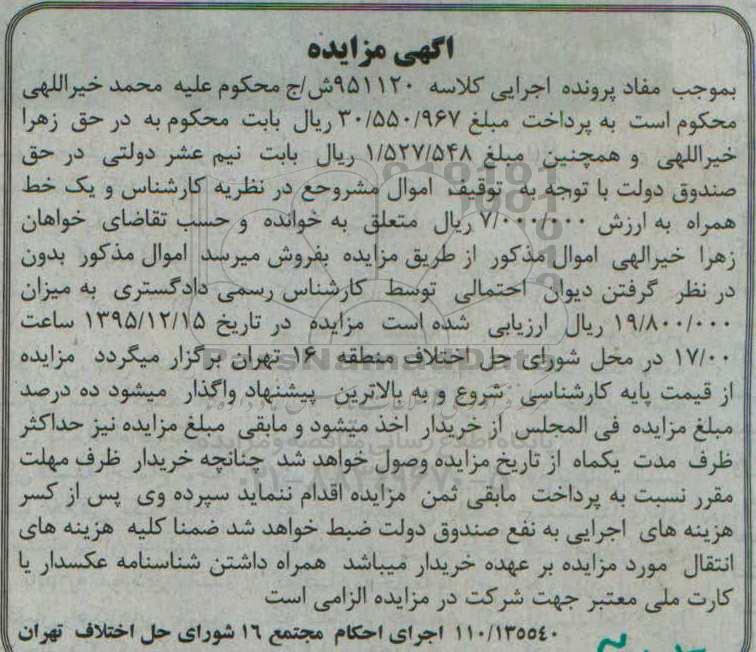 اگهی مزایده
بموجب مفاد پرونده اجرایی کلاسه ۹۵۱۱۲۰ش/ج محکوم علیه محمد خیراللهی
محکوم است به پرداخت مبلغ ۳۰/۵۵۰/۹۶۷ ریال بابت محکوم به در حق زهرا
خیراللهی و همچنین مبلغ ۱/۵۲۷/۵۴۸ ریال بابت نیم عشر دولتی در حق
صندوق دولت با توجه به توقیف اموال مشروحع در نظریه کارشناس و یک خط
همراه به ارزش ۷/۰۰۰/۰۰۰ ریال متعلق به خوانده و حسب تقاضای خواهان
زهرا خیرالهی اموال مذکور از طریق مزایده بفروش میرسد اموال مذکور بدون
در نظر گرفتن دیوان احتمالی توسط کارشناس رسمی دادگستری به میزان
۱۹/۸۰۰/۰۰۰ ریال ارزیابی شده است مزایده در تاریخ ۱۳۹۵/۱۲/۱۵ ساعت
۱۷/۰۰ در محل شورای حل اختلاف منطقه ۱۶ تهران برگزار میگردد مزایده
از قیمت پایه کارشناسی شروع و به بالاترین پیشنهاد واگذار میشود ده درصد
مبلغ مزایده فی المجلس از خریدار اخذ میشود و مابقی مبلغ مزایده نیز حداکثر
ظرف مدت یکماه از تاریخ مزایده وصول خواهد شد چنانچه خریدار ظرف مهلت
مقرر نسبت به پرداخت مابقی ثمن مزایده اقدام ننماید سپرده وی پس از کسر
هزینه های اجرایی به نفع صندوق دولت ضبط خواهد شد ضمنا کلیه هزینه های
انتقال مورد مزایده بر عهده خریدار میباشد همراه داشتن شناسنامه عکسدار یا
کارت ملی معتبر جهت شرکت در مزایده الزامی است
۱۱۰/۱۳۵۵۴۰ اجرای احکام مجتمع ۱۶ شورای حل اختلاف تهران